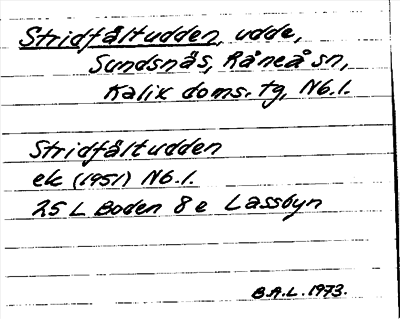 Stridfåltudden, udde,
Sundsnås, Råneå sn,
Kalix doms. tg, Nb.l.
Stridfåltudden
ek (1951) Nb.l.
25 L Boden 8 e Lassbyn
B.A.L. 1973.